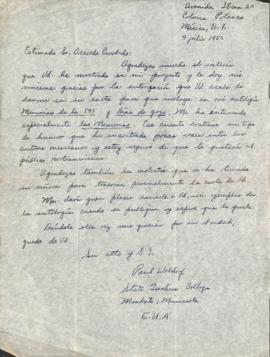 Avenida Ibsen 20
Colonia Polanco
México, D. F.
9 julio 1952
Estimado Sr. Acevedo Escobedo:
Agradezco mucho el interés
que Ud. ha mostrado en mi proyecto y le doy mis
sinceras gracias por la autorización que Ud. acaba de
darme en su carta para que incluya en mi antología
Memorias de la 595 y Días de gozo. Me ha entusiasmado
especialmente las Memorias. Ese cuento contiene un tipo
de humor que he encontrado pocas veces entre los
autores mexicanos y estoy seguro de que le gustará al
público norteamericano.
Agradezco también la molestia que se ha tomado
en
Me dará gran placer enviarle a Ud. un ejemplar de
la antología cuando se publique, y espero que le guste.
Dándole otra vez mis gracias por su bondad,
quedo de Ud.
Su atto y S. S.
Paul
State Teachers College
Mankato, Minnesota
E.U.A.